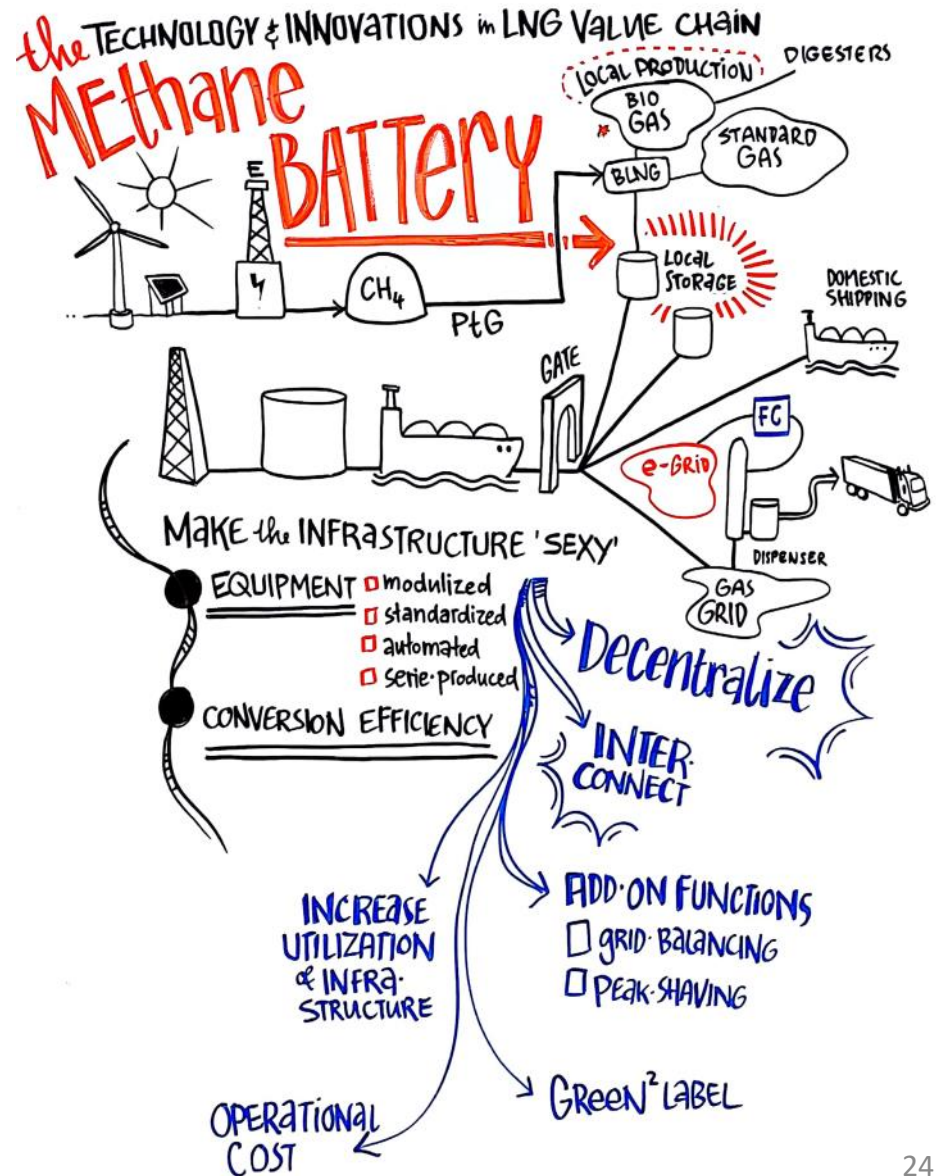 the TECHNOLOGY & INNOVATIONS in LNG VALUE CHAIN
MEthane
BATTERY
LOCAL PRODUCTION
DIGESTERS
BIO
GAS
STANDARD
GAS
BLNG
LOCAL
STORAGE
DOMESTIC
SHIPPING
CH4
PtG
GATE
FC
e-GRID
DISPENSER
GAS
GRID
MAKE the INFRASTRUCTURE 'SEXY'
EQUIPMENT
modulized
standardized
automated
serie-produced
CONVERSION EFFICIENCY
Decentralize
INTER-
CONNECT
ADD-ON FUNCTIONS
GRID-BALANCING
PEAK-SHAVING
INCREASE
UTILIZATION
of INFRA-
STRUCTURE
GReeN² LABEL
OPERATIONAL
COST
24